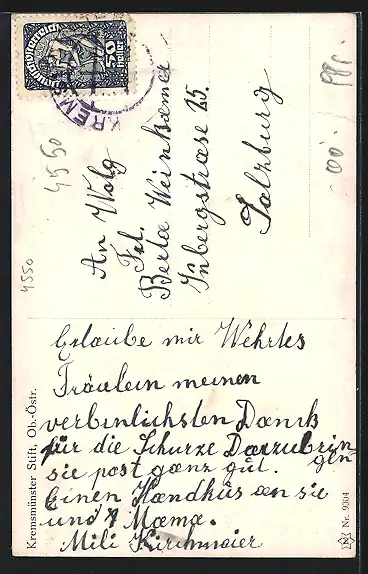 Deutschösterreich
50
heller
KREMS
4550
4550
An Wolg
Frl.
Berta Weinkamer
Inbergstrase 25.
Salzburg
Kremsmünster Stift, Ob.-Östr.
Nr. 9304
Erlaube mir Wehrtes
Fräulein meinen
verbinlichsten Danck
für die Schurze Darzubrin
gen
sie past ganz gut.
Einen Handküs an sie
und Mama.
Mili Kirchmaier